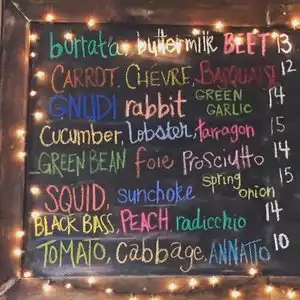 burrata, buttermilk BEET 13
CARROT, CHÈVRE, BASQUAISE 12
GNUDI rabbit GREEN GARLIC 14
CUCUMBER, Lobster, tarragon 15
GREEN BEAN foie Prosciutto 14
SQUID, sunchoke spring onion 15
BLACK BASS, PEACH, radicchio 14
TOMATO, Cabbage, ANNATTO 10